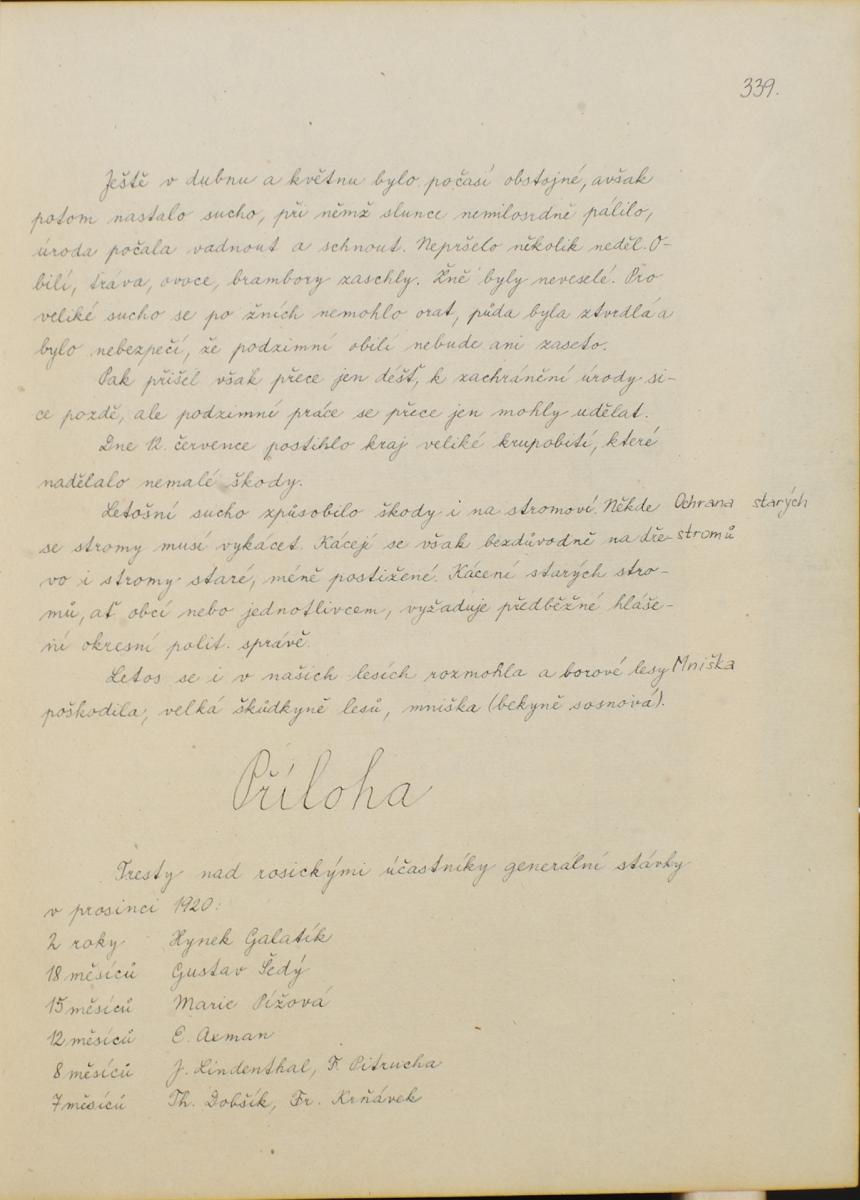 339.
Ještě v dubnu a květnu bylo počasí obstojné, avšak
potom nastalo sucho, při němž slunce nemilosrdně pálilo,
úroda počala vadnout a schnout. Nepršelo několik neděl. O-
bilí, tráva, ovoce, brambory zaschly. Žně byly neveselé. Pro
veliké sucho se po žních nemohlo orat, půda byla ztvrdlá a
bylo nebezpečí, že podzimní obilí nebude ani zaseto.
Pak přišel však přece jen déšť, k zachránění úrody si-
ce pozdě, ale podzimní práce se přece jen mohly udělat.
Dne 12. července postihlo kraj veliké krupobití, které
nadělalo nemalé škody.
Letošní sucho způsobilo škody i na stromoví. Někde
Ochrana starých
se stromy musí vykácet. Kácejí se však bezdůvodně na dře-
stromů
vo i stromy staré, méně postižené. Kácení starých stro-
mů, ať obcí nebo jednotlivcem, vyžaduje předběžné hláše-
ní okresní polit. správě.
Letos se i v našich lesích rozmohla a borové lesy
Mniška
poškodila, velká škůdkyně lesů, mniška (bekyně sosnová).
Příloha
Tresty nad rosickými účastníky generální stávky
v prosinci 1920:
2 roky Hynek Galatík
18 měsíců Gustav Šedý
15 měsíců Marie Pížová
12 měsíců E. Axman
8 měsíců J. Lindenthal, F. Pitrucha
7 měsíců Th. Dobšík, Fr. Krňávek